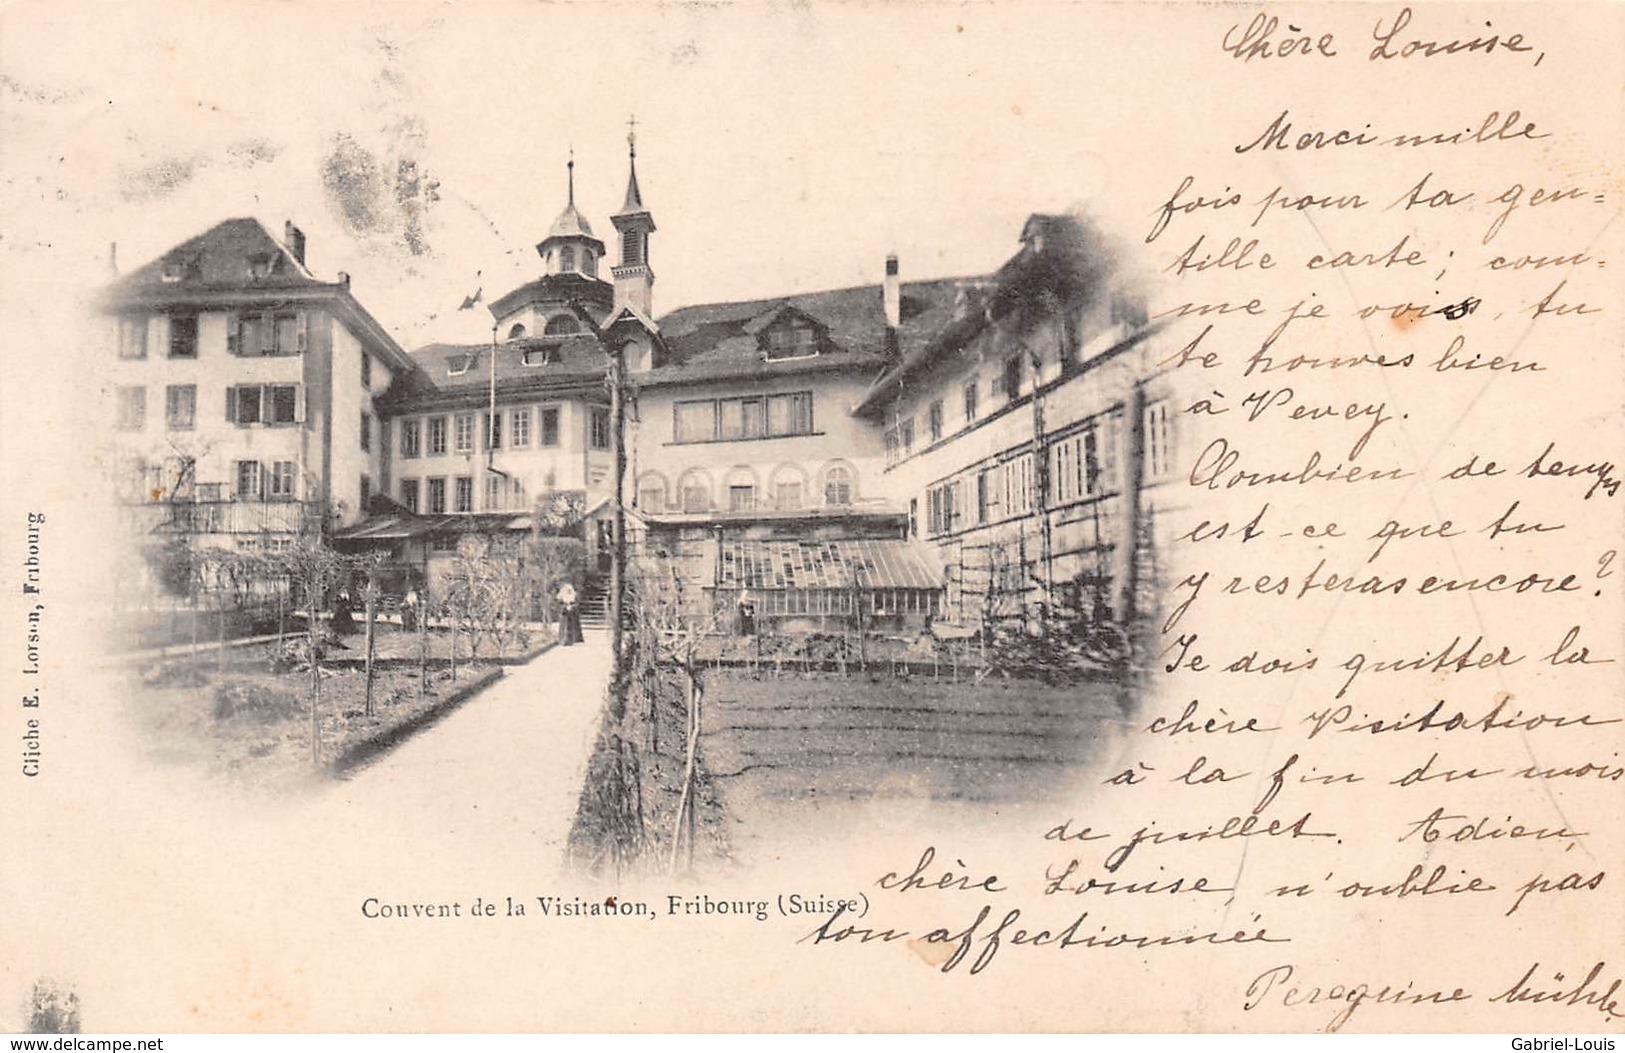 Chère Louise,
Merci mille
fois pour ta gen=
tille carte; com=
me je vois, tu
te trouves bien
à Vevey.
Combien de temps
est-ce que tu
y resteras encore?
Je dois quitter la
chère Visitation
à la fin du mois
de juillet. Adieu,
chère Louise, n'oublie pas
ton affectionnée
Peregrine Mühle.
Couvent de la Visitation, Fribourg (Suisse)
Cliche E. Lorson, Fribourg
www.delcampe.net
Gabriel-Louis